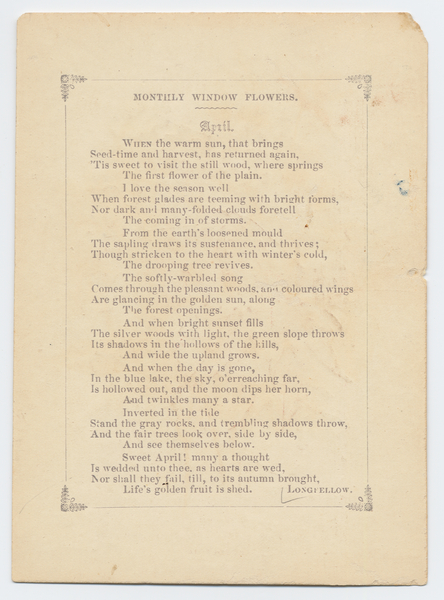 MONTHLY WINDOW FLOWERS.
April.
WHEN the warm sun, that brings
Seed-time and harvest, has returned again,
'Tis sweet to visit the still wood, where springs
The first flower of the plain.
I love the season well
When forest glades are teeming with bright forms,
Nor dark and many-folded clouds foretell
The coming in of storms.
From the earth's loosened mould
The sapling draws its sustenance, and thrives;
Though stricken to the heart with winter's cold,
The drooping tree revives.
The softly-warbled song
Comes through the pleasant woods, and coloured wings
Are glancing in the golden sun, along
The forest openings.
And when bright sunset fills
The silver woods with light, the green slope throws
Its shadows in the hollows of the hills,
And wide the upland grows.
And when the day is gone,
In the blue lake, the sky, o'erreaching far,
Is hollowed out, and the moon dips her horn,
And twinkles many a star.
Inverted in the tide
Stand the gray rocks, and trembling shadows throw,
And the fair trees look over, side by side,
And see themselves below.
Sweet April! many a thought
Is wedded unto thee, as hearts are wed,
Nor shall they fail, till, to its autumn brought,
Life's golden fruit is shed. LONGFELLOW.